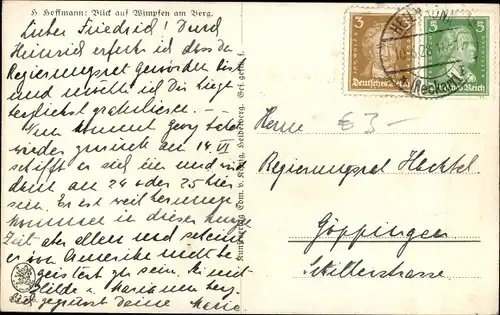 H. Hoffmann: Blick auf Wimpfen am Berg.
Lieber Friedrich! Durch
Heinrich erfuhr ich dass du
Regierungsrat geworden bist
und möchte ich Dir
herzlichst gratulieren. —
Nun kommt Georg bald
wieder zurück am 14. VI
schifft er sich ein und wird
dann am 24 oder 25 hier
sein. Er ist weit herumge-
kommen in dieser kurzen
Zeit aber allem und
von Amerika nicht be-
geistert zu sein.
Hilde u. Mariannen herz-
lich gegrüsst Deine Marie
Kunstverlag Edm. v. König, Heidelberg. Ges. gesch.
3
Deutsches Reich
5
Deutsches Reich
HEILBRONN
(Neckar)
Herrn
€ 3 —
Regierungsrat
Göppingen
Schillerstrasse